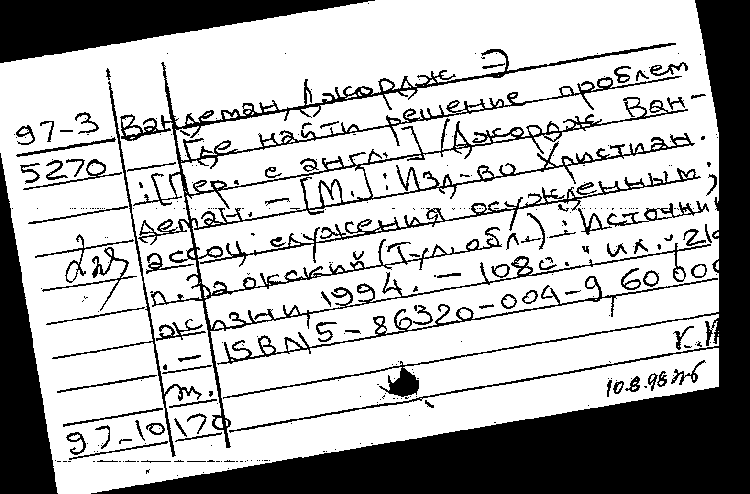 97-3 Вандеман, Джордж Э
5270 Где найти решение проблем
: [Пер. с англ.] / Джордж Ван-
деман. - [М.] : Изд-во Христиан.
ассоц. служения осужденным;
п. Заокский (Тул. обл.) : Источник
жизни, 1994. - 108с. : ил.; 21с
. - ISBN 5-86320-004-9, 60 000
т.
97-10170
10.8.98